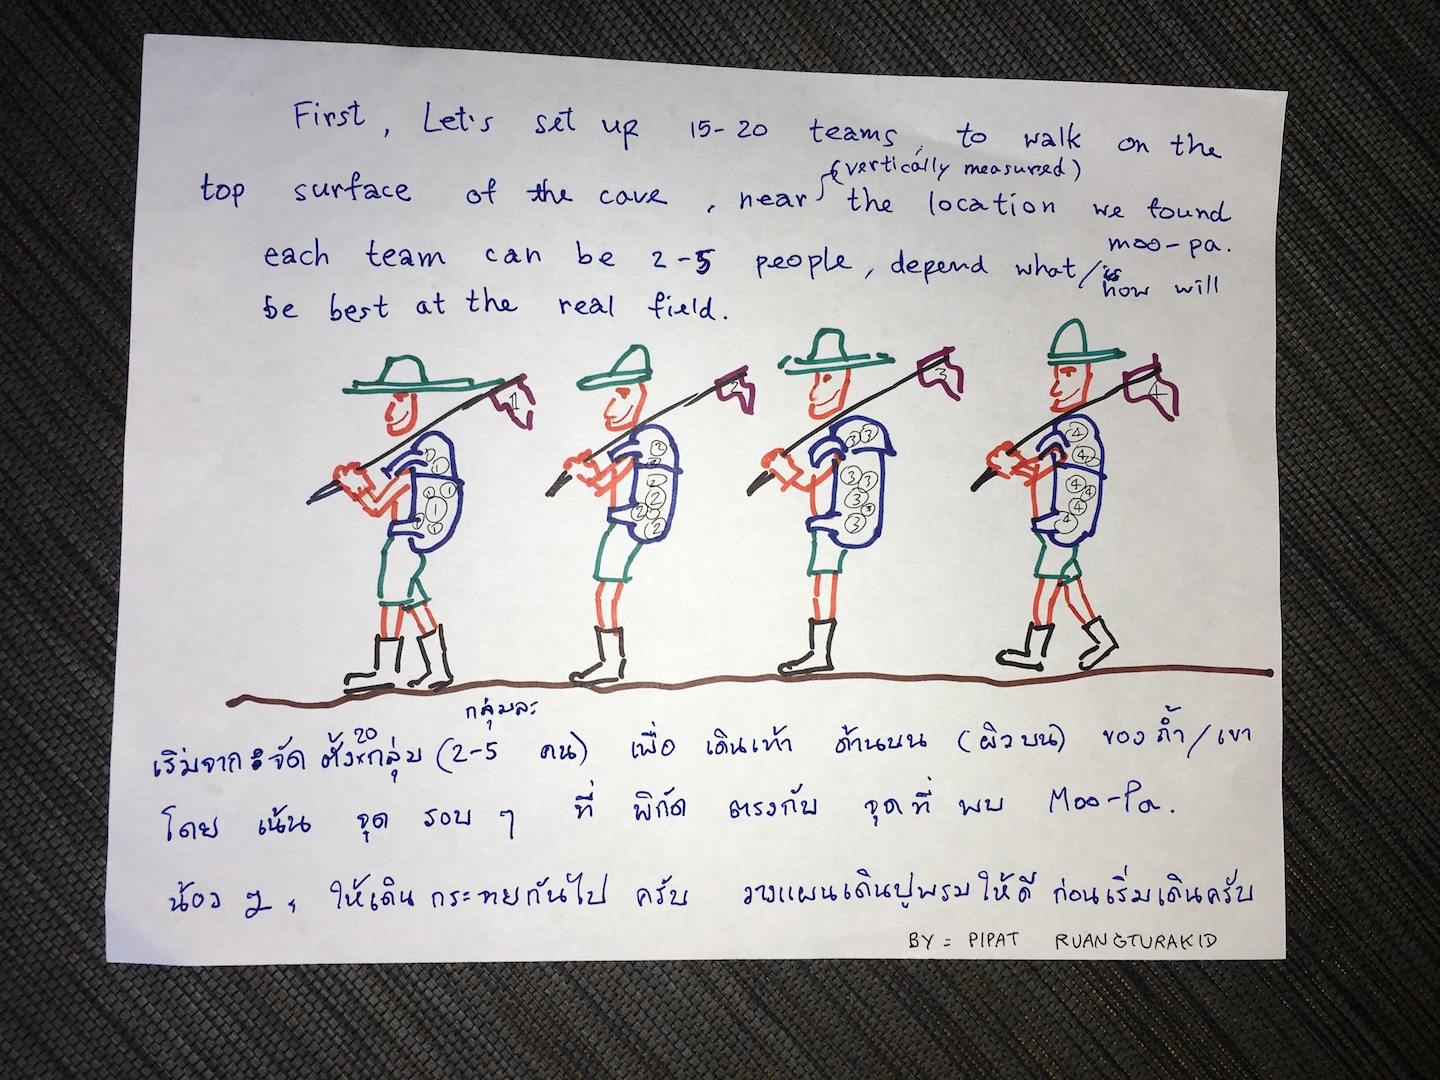 First, Let's set up 15-20 teams, to walk on the
(vertically measured)
top surface of the cave, near the location we found
moo-pa.
each team can be 2-5 people, depend what/how will
be best at the real field.
1 2 3 4
1 1 1 1 1 1 1
2 2 2 2 2 2 2
3 3 3 3 3 3 3
4 4 4 4 4 4 4
กลุ่มละ
20
เริ่มจาก จัด ตั้ง กลุ่ม (2-5 คน) เพื่อ เดินเท้า ด้านบน (ผิวบน) ของ ถ้ำ/เขา
โดย เน้น จุด รอบ ๆ ที่ พิกัด ตรงกับ จุดที่ พบ Moo-Pa.
น้อง ๆ, ให้เดิน กระจายกันไป ครับ วางแผนเดินปูพรมให้ดี ก่อนเริ่มเดินครับ
BY = PIPAT RUANGTURAKID